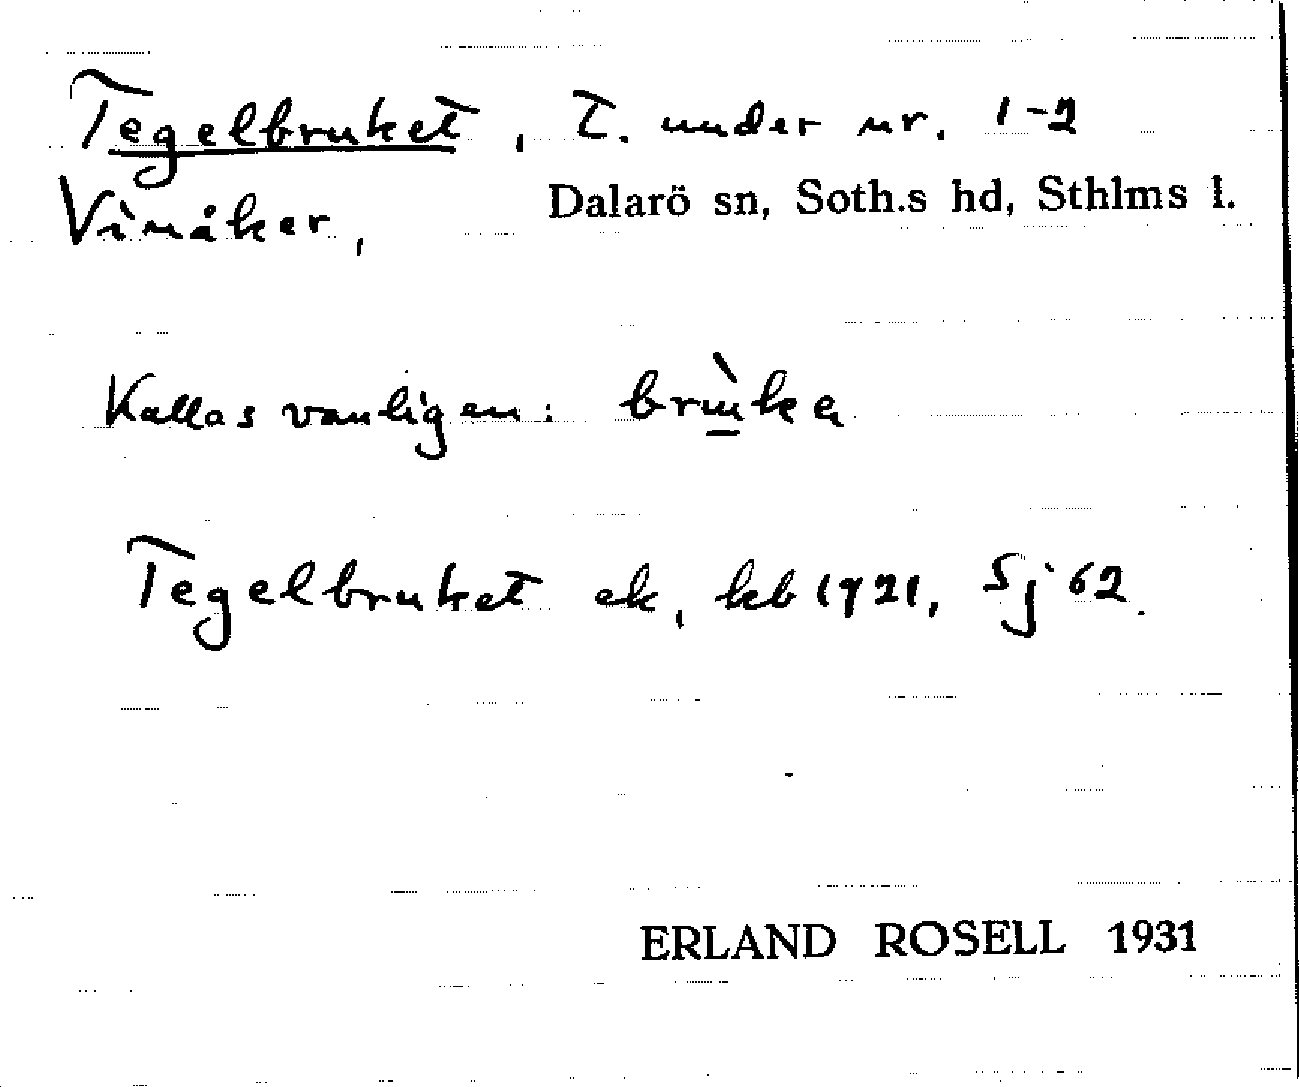 Tegelbruket, T. under nr. 1-2
Vinåker, Dalarö sn, Soth.s hd, Sthlms l.
Kallas vanligen: brùka
Tegelbruket ek, kb 1921, Sj 62.
ERLAND ROSELL 1931